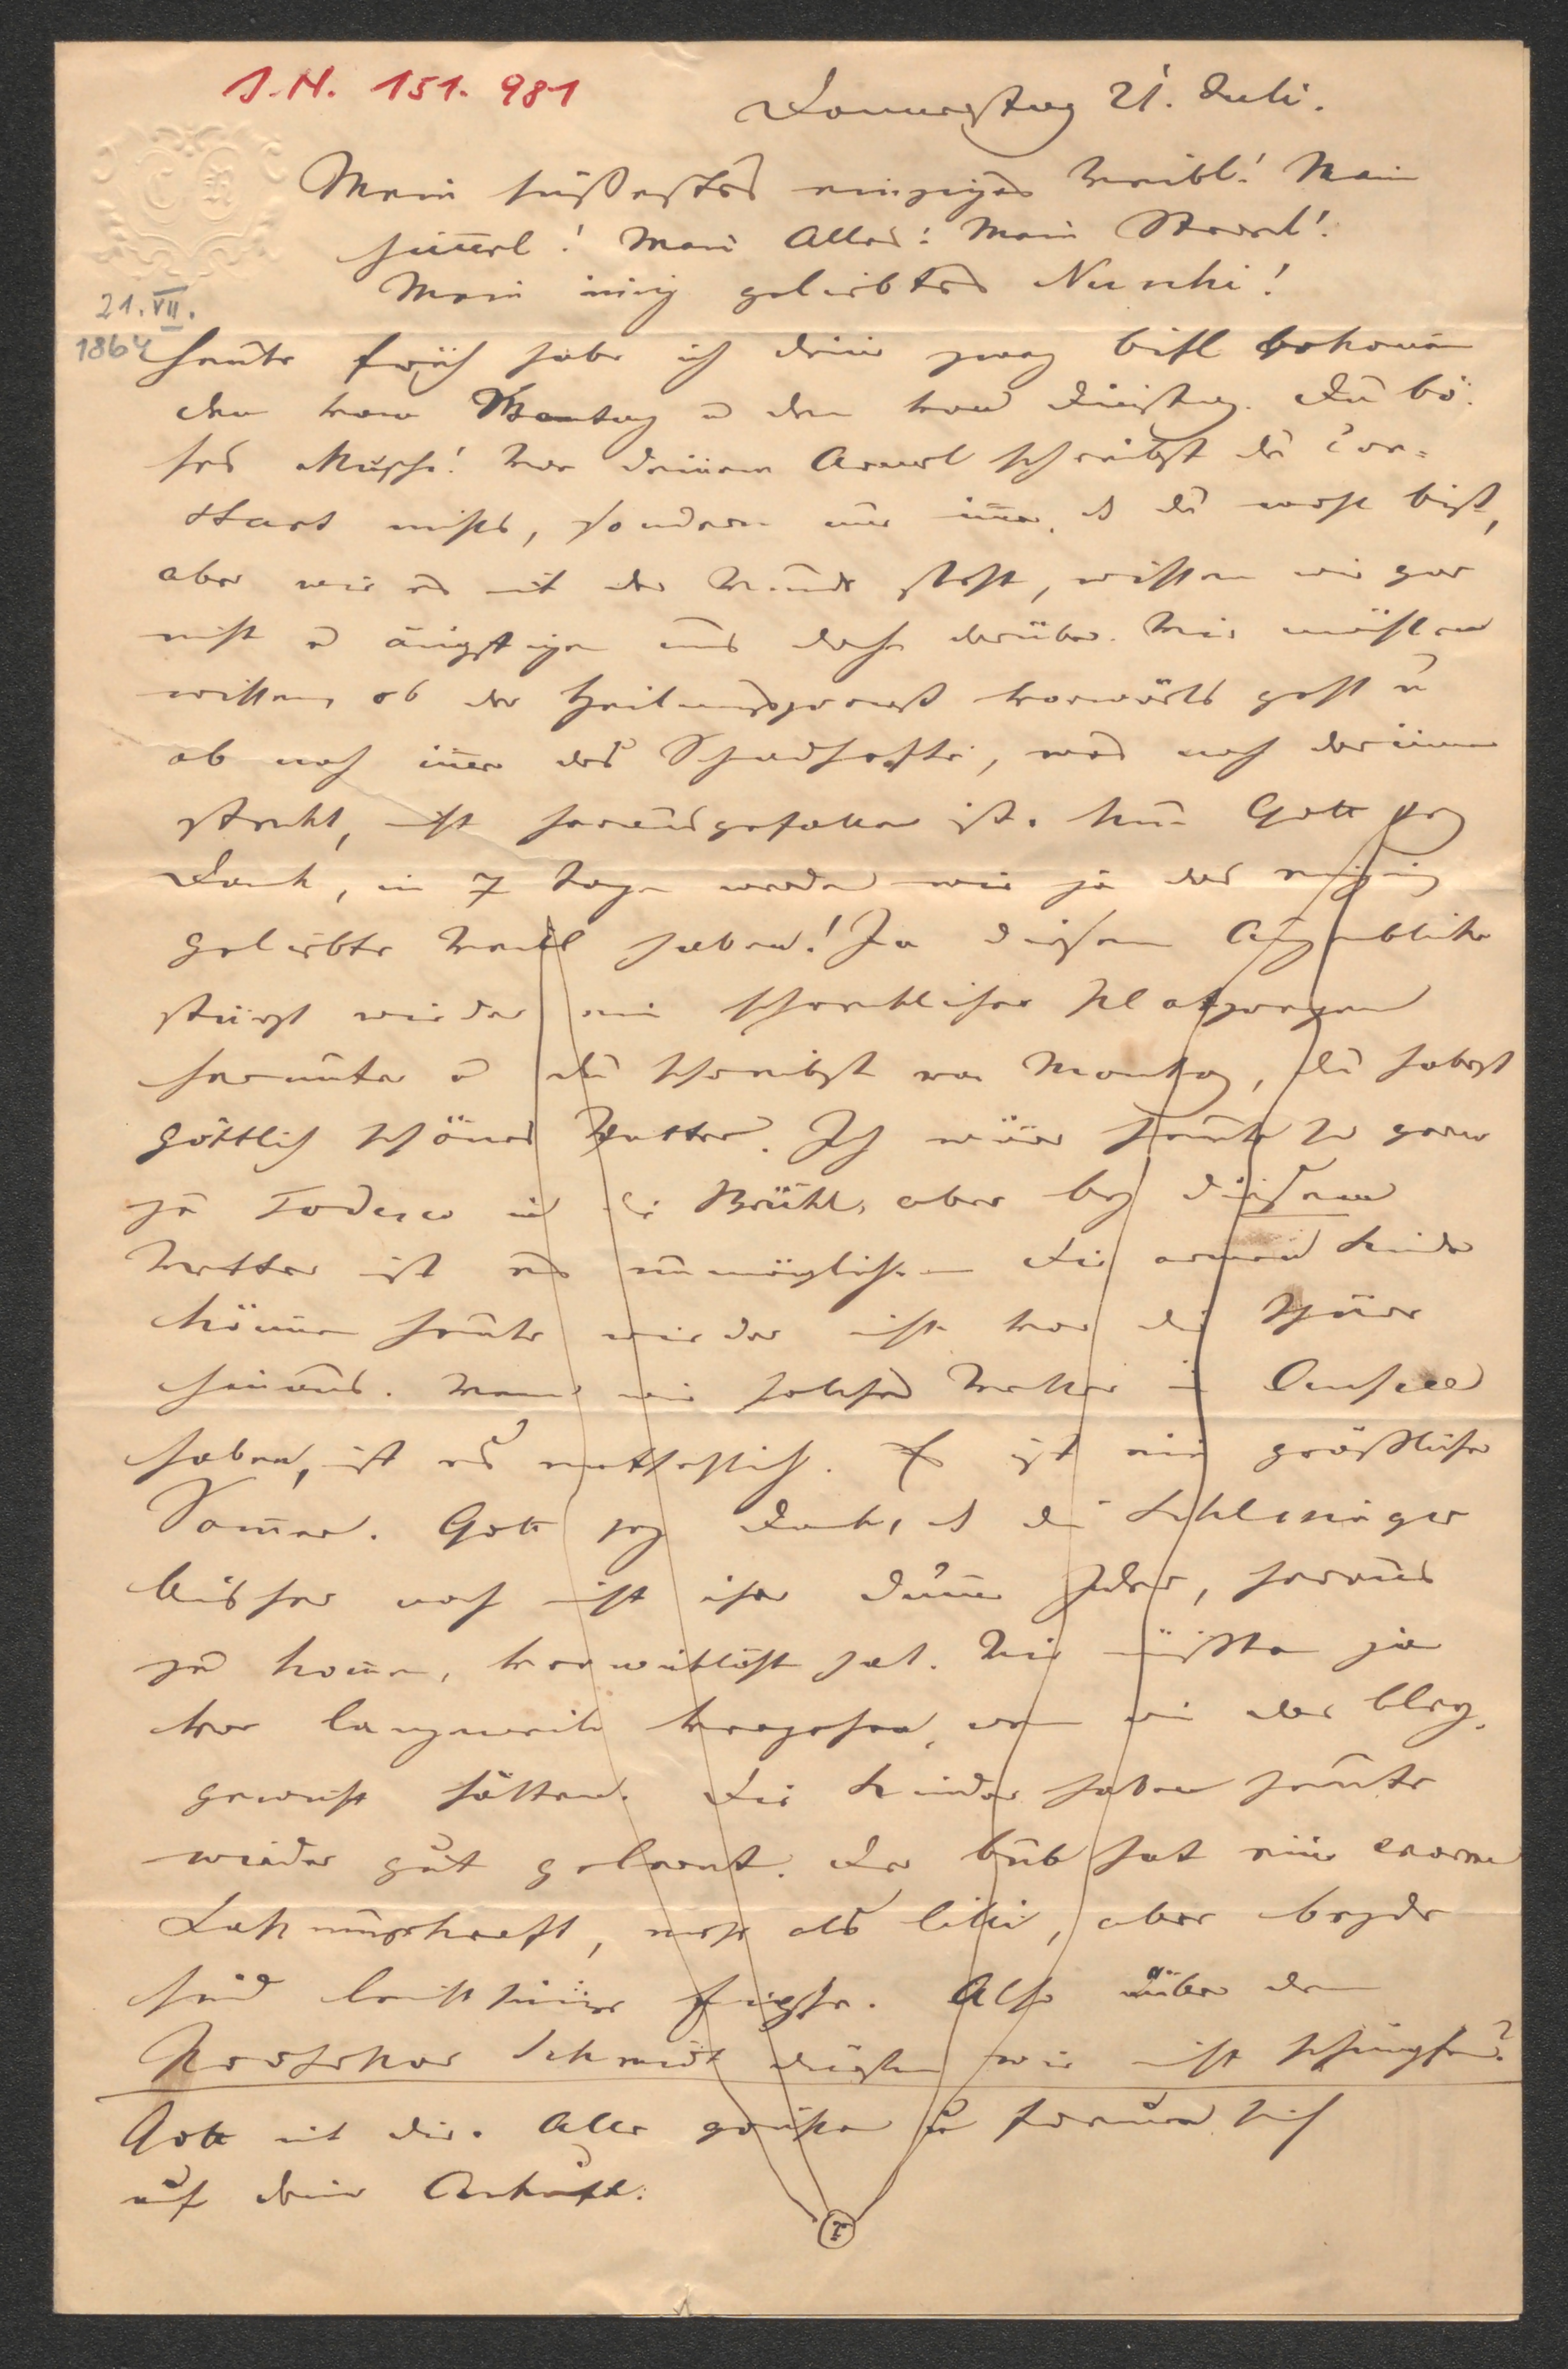 I.N. 151.981
Donnerstag 21. Juli.
C R
Mein süßestes einziges Weibl! Mein
Himerl! Mein Alles! Mein
Mein innig geliebtes Nuschi!
21. VII.
1864
Heute früh habe ich deine zwey bisl bekomen
den vom Montag u den vom Dienstag. Du bö-
ses Muschi! Von deinem Armerl schreibst du con-
stant nichts, sondern nur imer, ds du wohl bist,
aber wie es mit der Wunde steht, wissen wir gar
nicht u ängstigen uns doch darüber. Wir möchten
wissen, ob der Heilungsprozeß vorwärts geht u
ob noch imer das Schadhafte, was noch darinnen
steckt, nicht herausgefallen ist. Nun Gott sey
Dank, in 7 Tagen werden wir ja das einzig
geliebte Weibl haben! In diesem Augenblicke
stürzt wieder ein schrecklicher Platzregen
herunter u du schreibst von Montag, du habest
göttlich schönes Wetter. Ich wäre heute so gern
zu Todesco in die Brühl, aber bey diesem
Wetter ist es unmöglich. – Die armen Kinder
können heute wieder nicht vor die Thüre
hinaus. Wenn wir solches Wetter in Aussee
haben, ist es entsetzlich. Es ist ein gräßlicher
Somer. Gott sey Dank, ds die Schlesinger
bisher noch nicht ihre Idee, heraus
zu komen, verwirklicht hat. Wir müßten ja
vor langweile vergehen, wenn wir das
gewußt hätten. Die Kinder haben heute
wieder gut gelernt. Der Bub hat eine enorme
Fassungskraft, mehr als Lilli, aber beyde
sind leichtsinnige Frösche. Also über den
Professor Schmidt dürfen wir nicht schimpfen?
Gott mit dir. Alle grüßen u freuen sich
auf deine Ankunft.